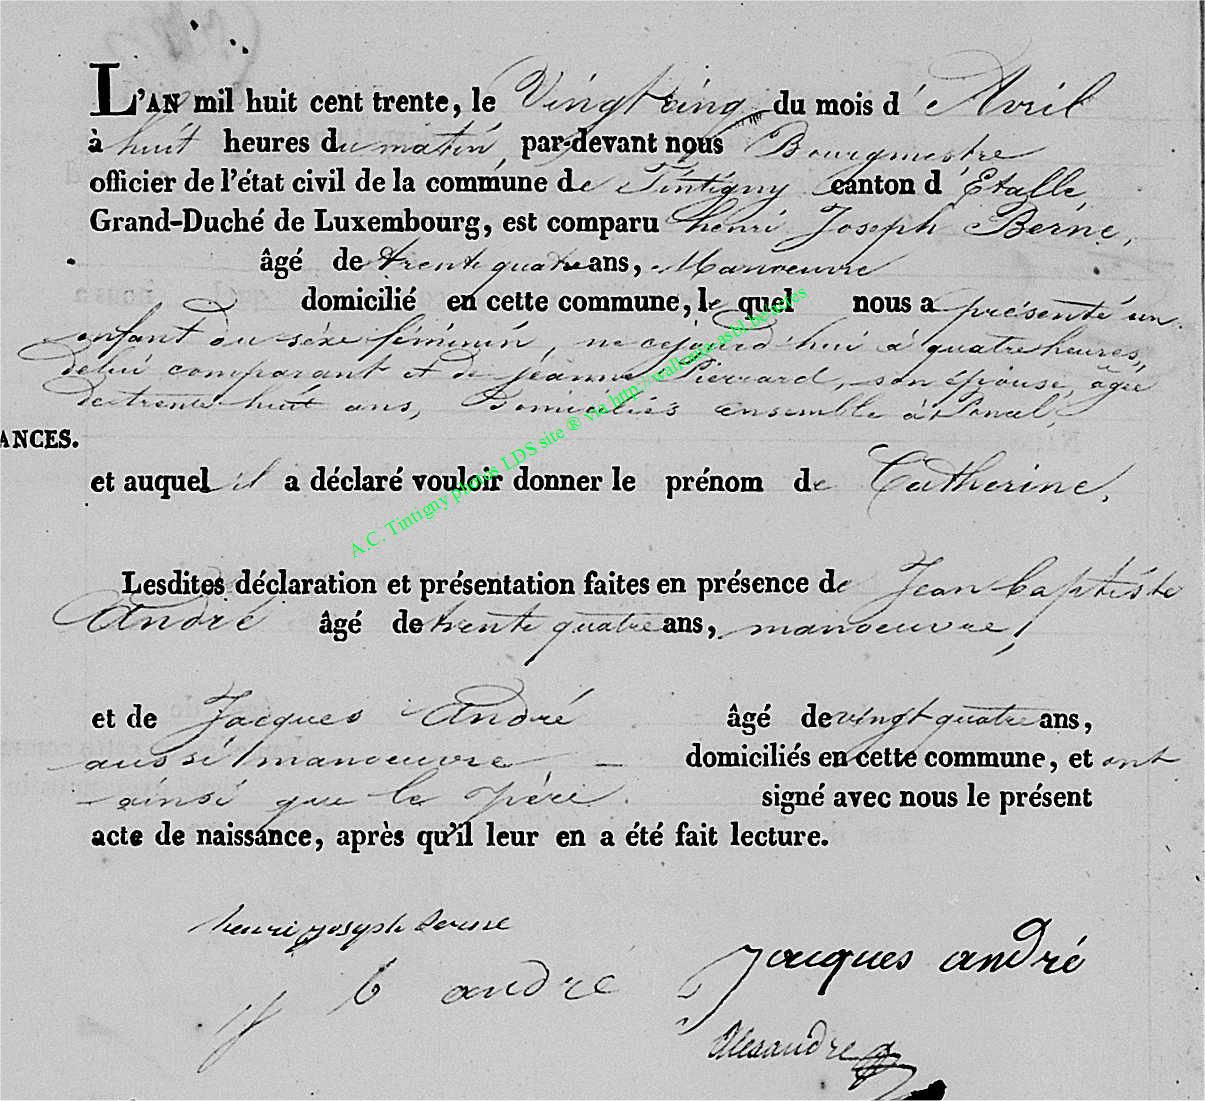 L'AN mil huit cent trente, le Vingt cinq du mois d'Avril
à huit heures du matin, par-devant nous Bourgmestre
officier de l'état civil de la commune de Tintigny canton d'Etalle,
Grand-Duché de Luxembourg, est comparu henri Joseph Berne,
âgé de trente quatre ans, Manoeuvre
domicilié en cette commune, le quel nous a présenté un
enfant du sexe féminin, né cejourd'hui à quatre heures,
de lui comparant et de jéanne Pierrard, son épouse, âgée
de trente huit ans, Domiciliés ensemble à
ANCES.
et auquel il a déclaré vouloir donner le prénom de Catherine.
Lesdites déclaration et présentation faites en présence de Jean baptiste
André âgé de trente quatre ans, manoeuvre,
et de Jacques André âgé de vingt quatre ans,
aussi manoeuvre domiciliés en cette commune, et ont
ainsi que le père. signé avec nous le présent
acte de naissance, après qu'il leur en a été fait lecture.
henri joseph berne
j b andré
jacques andré
Alesandre
A.C. Tintigny photos LDS site ® via http://wallonia-asbl.be/actes